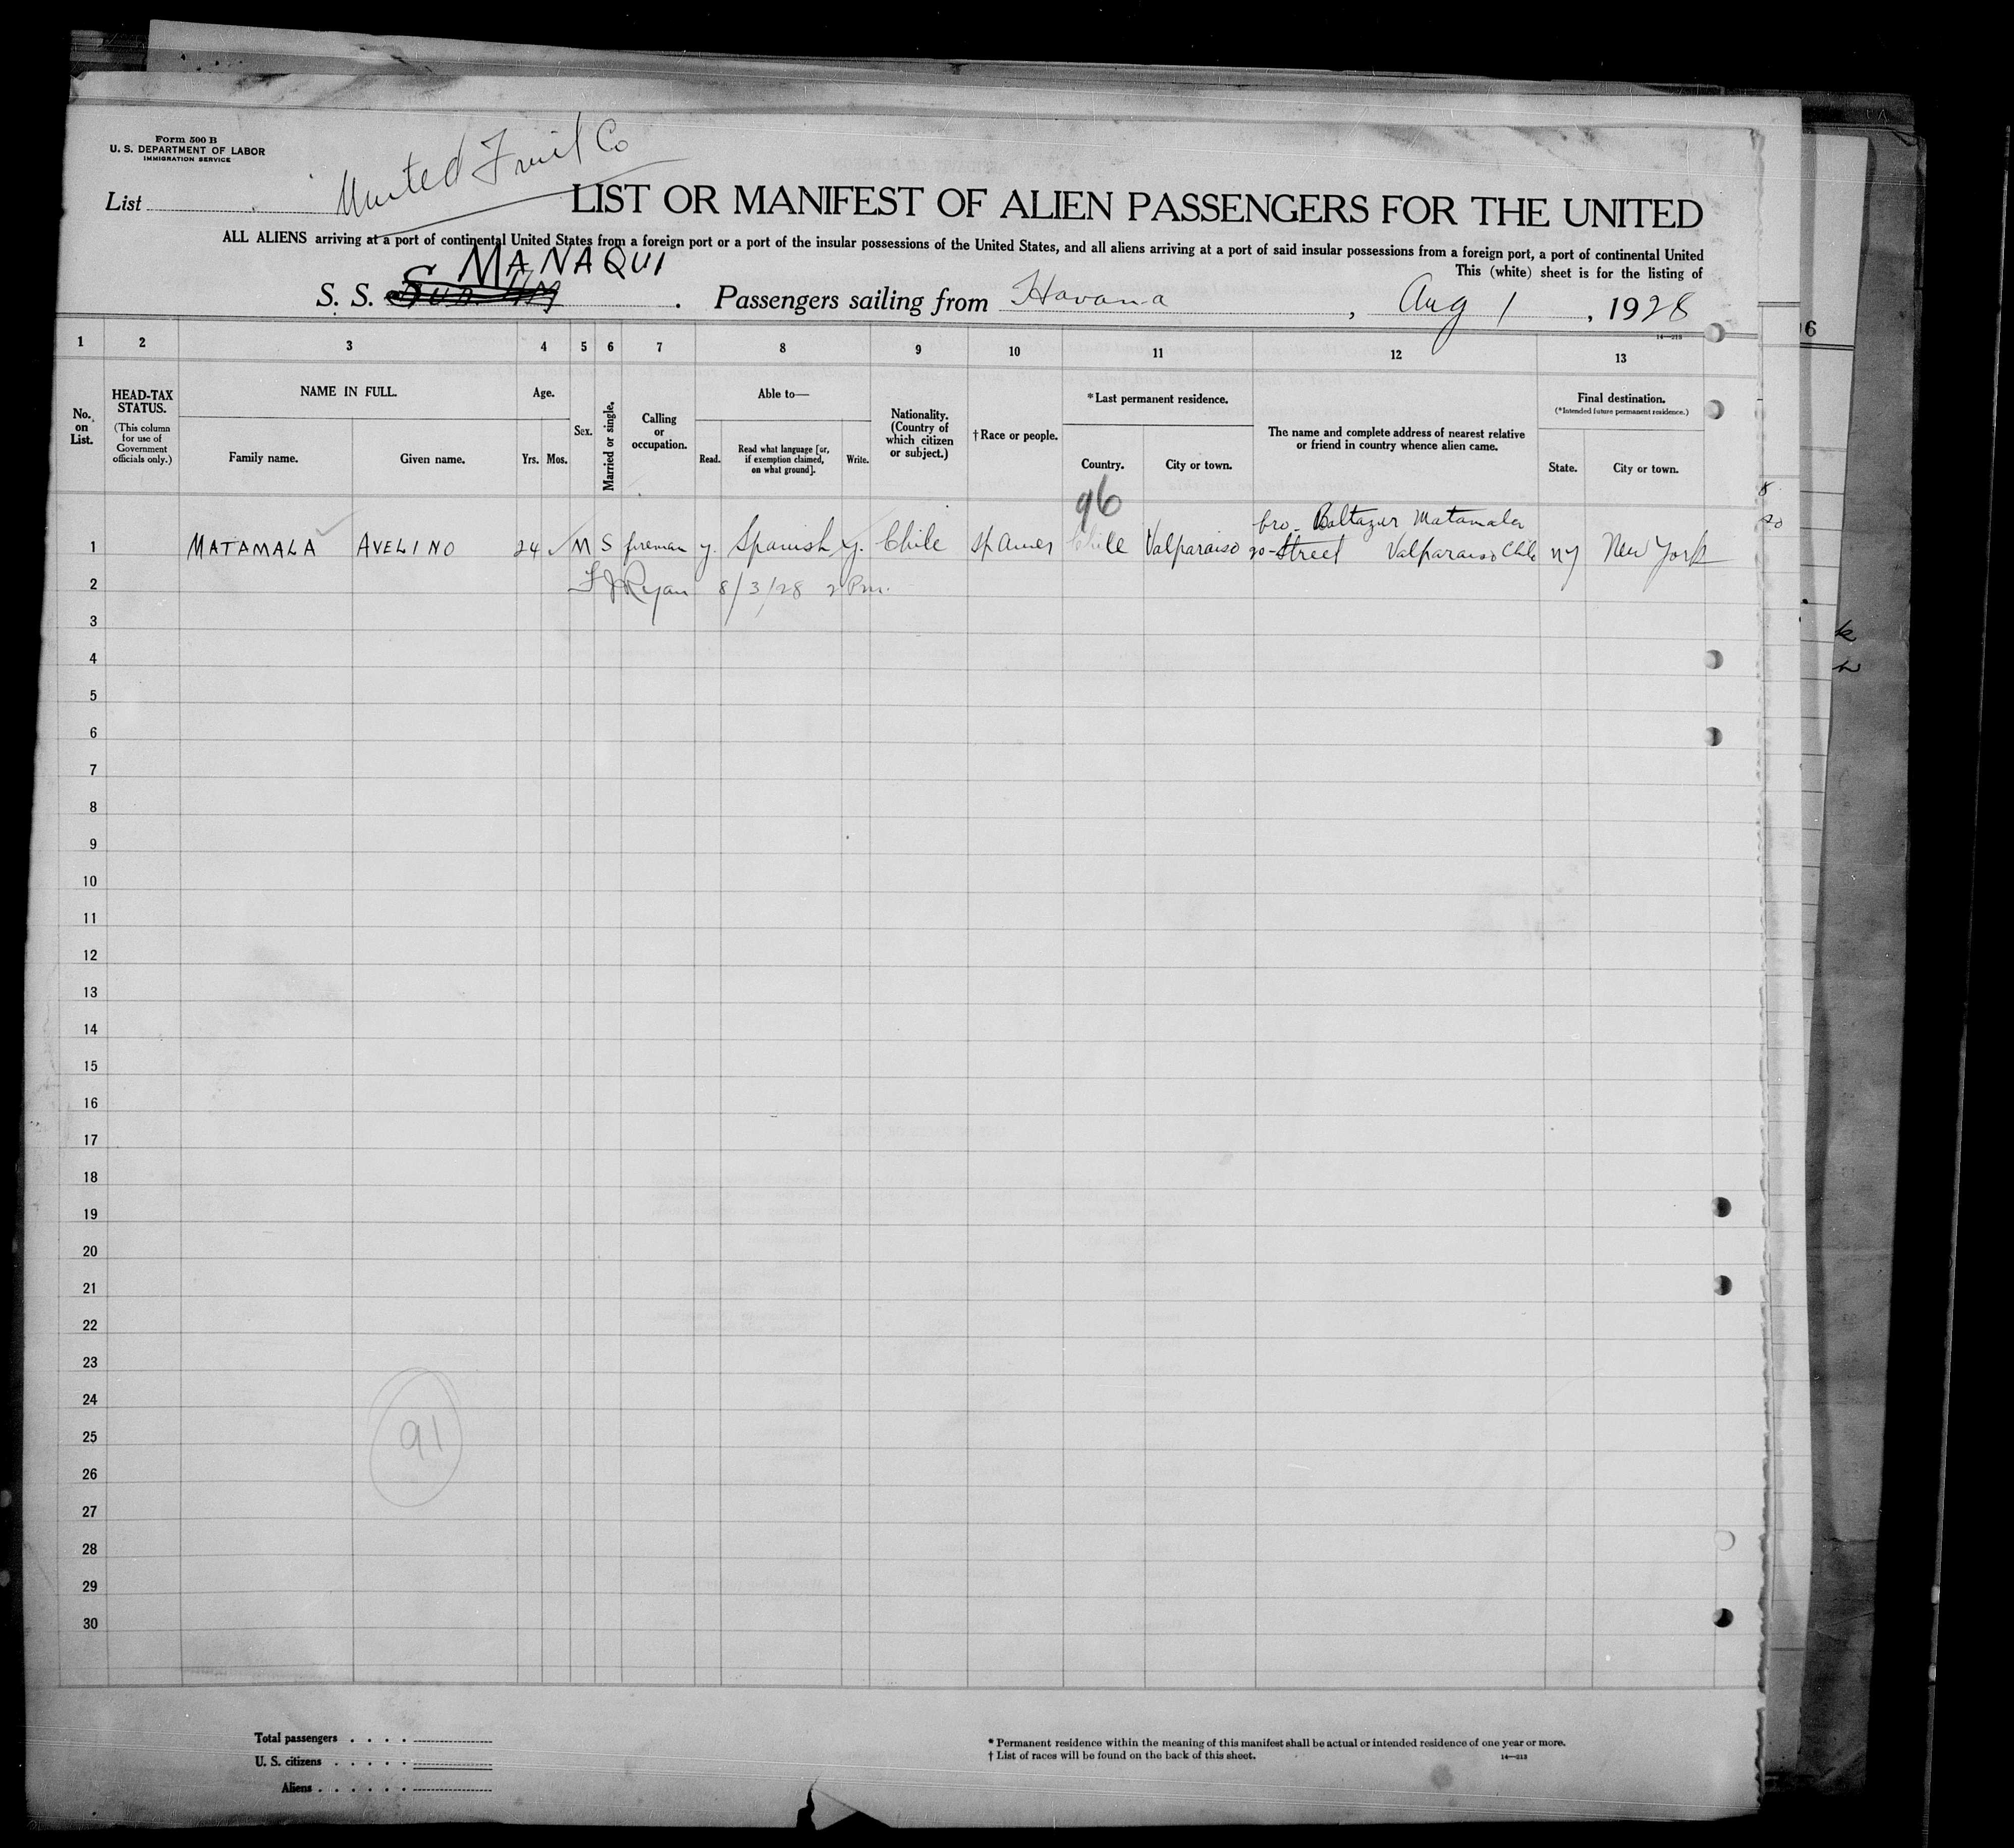 Form 500 B
U. S. DEPARTMENT OF LABOR
IMMIGRATION SERVICE
United Fruit Co
List
LIST OR MANIFEST OF ALIEN PASSENGERS FOR THE UNITED
ALL ALIENS arriving at a port of continental United States from a foreign port or a port of the insular possessions of the United States, and all aliens arriving at a port of said insular possessions from a foreign port, a port of continental United
This (white) sheet is for the listing of
MANAQUI
S. S. Passengers sailing from Havana, Aug 1, 1928
14—213
1 2 3 4 5 6 7 8 9 10 11 12 13
No. on List.
HEAD-TAX STATUS.
(This column for use of Government officials only.)
NAME IN FULL.
Family name. Given name.
Age.
Yrs. Mos.
Sex.
Married or single.
Calling or occupation.
Able to—
Read. Read what language [or, if exemption claimed, on what ground]. Write.
Nationality. (Country of which citizen or subject.)
†Race or people.
*Last permanent residence.
Country. City or town.
The name and complete address of nearest relative or friend in country whence alien came.
Final destination.
(*Intended future permanent residence.)
State. City or town.
96
bro- Baltazar Matamala
1 MATAMALA AVELINO 24 M S fireman y. Spanish y. Chile Sp Amer Chile Valparaiso Street Valparaiso Chile NY New York
2 F J Ryan 8/3/28 2 Pm.
3
4
5
6
7
8
9
10
11
12
13
14
15
16
17
18
19
20
21
22
23
24
25
91
26
27
28
29
30
Total passengers
U. S. citizens
Aliens
* Permanent residence within the meaning of this manifest shall be actual or intended residence of one year or more.
† List of races will be found on the back of this sheet.
14—213